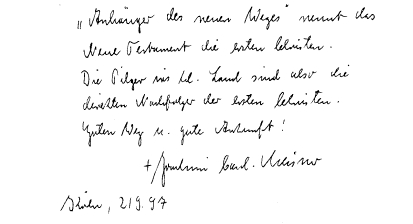 „Anhänger des neuen Weges" nennt das
Neue Testament die ersten Christen.
Die Pilger ins hl. Land sind also die
direkten Nachfolger der ersten Christen.
Guten Weg u. gute Ankunft!
+ Joachim Card. Meisner
Köln, 21.9.97